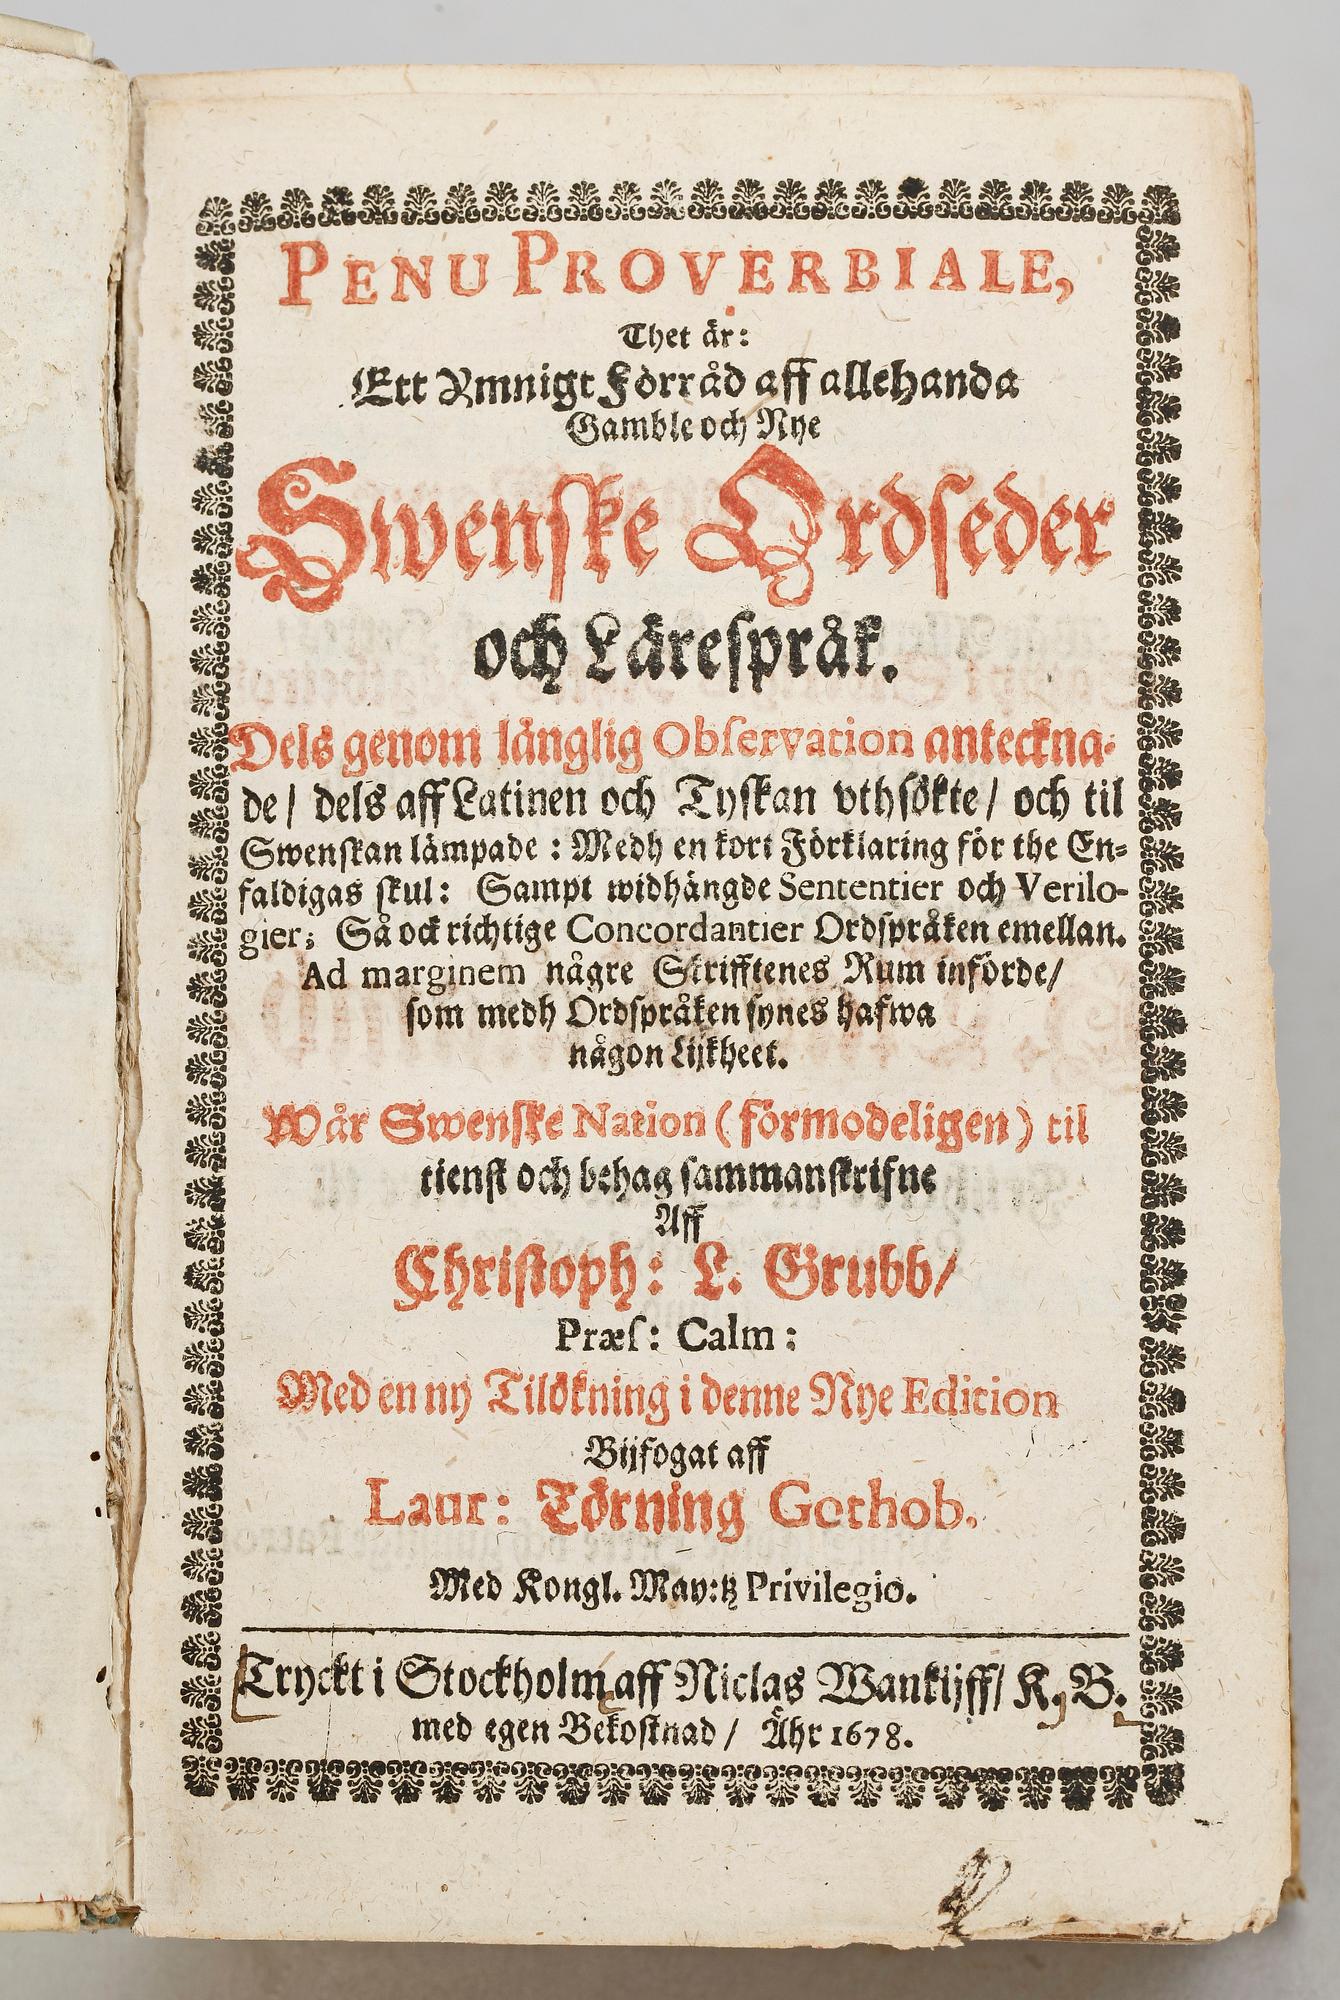 PENU PROVERBIALE,
Thet är:
Ett Ymnigt Förråd aff allehanda
Gamble och Nye
Swenske Ordseder
och Lärespråk.
Dels genom långlig Observation anteckna-
de / dels aff Latinen och Tyskan vthsökte / och til
Swenskan lämpade : Medh en kort Förklaring för the En-
faldigas skul: Sampt widhängde Sententier och Verilo-
gier; Så ock richtige Concordantier Ordspråken emellan.
Ad marginem någre Skrifftenes Rum införde /
som medh Ordspråken synes hafwa
någon Lijkheet.
Wår Swenske Nation (förmodeligen) til
tienst och behag sammanskrifne
Aff
Christoph: L. Grubb /
Præs: Calm:
Med en ny Tilökning i denne Nye Edition
Bijfogat aff
Laur: Törning Gothob.
Med Kongl. May:tz Privilegio.
Tryckt i Stockholm aff Niclas Wankijff / K. B.
med egen Bekostnad / Åhr 1678.